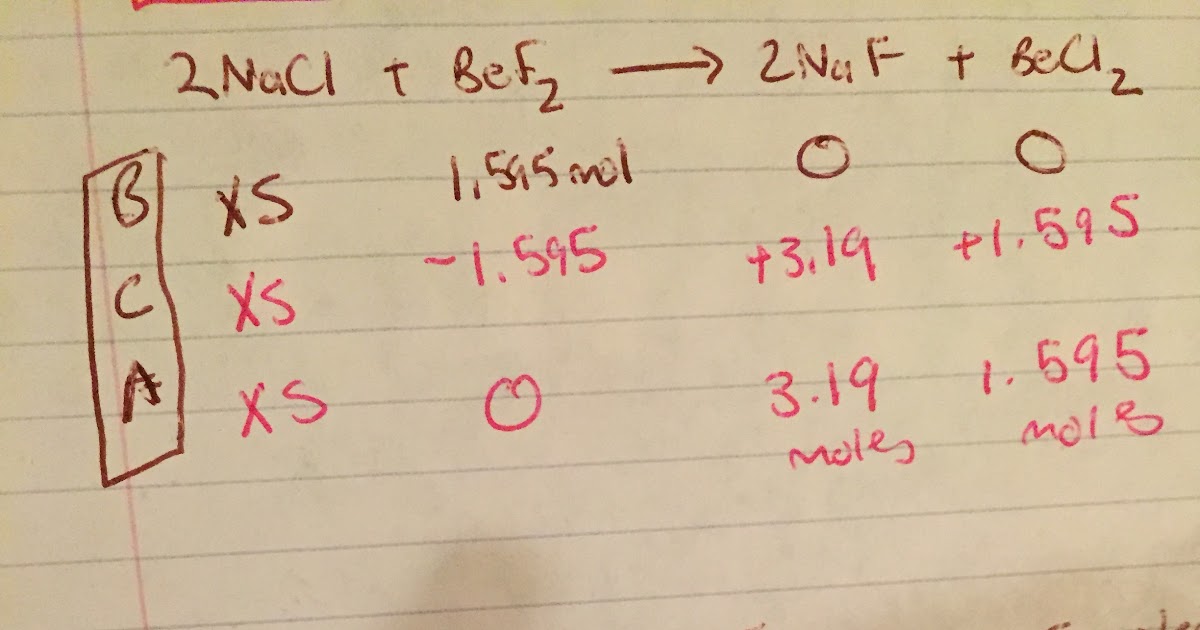 2NaCl + BeF₂ → 2NaF + BeCl₂
B XS 1.595 mol 0 0
C XS -1.595 +3.19 +1.595
A XS 0 3.19 1.595
moles moles